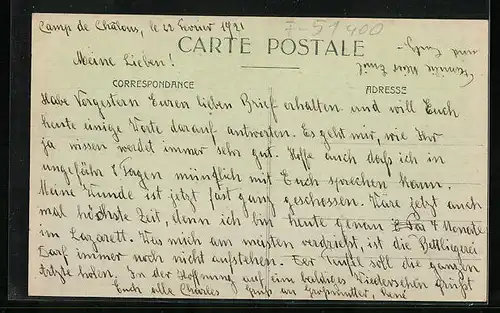 Camp de Châlons, le 22 Février 1921
F-51400
CARTE POSTALE
Meine Lieben!
CORRESPONDANCE
ADRESSE
Habe Vorgestern Euren lieben Brief erhalten und will Euch
heute einige Worte darauf antworten. Es geht mir, wie Ihr
ja wissen werdet immer sehr gut. Hoffe auch daß ich in
ungefähr 8 Tagen mündlich mit Euch sprechen kann.
Meine Wunde ist jetzt fast ganz geschossen. Wäre jetzt auch
mal höchste Zeit, denn ich bin heute genau 4 Monate
im Lazarett. Was mich am meisten verdrießt, ist die Bettliegerei
Darf immer noch nicht aufstehen. Der Teufel soll die ganzen
Ärzte holen. In der Hoffnung auf ein baldiges Wiedersehen grüßt
Euch alle Charles Gruß an Großmutter, René